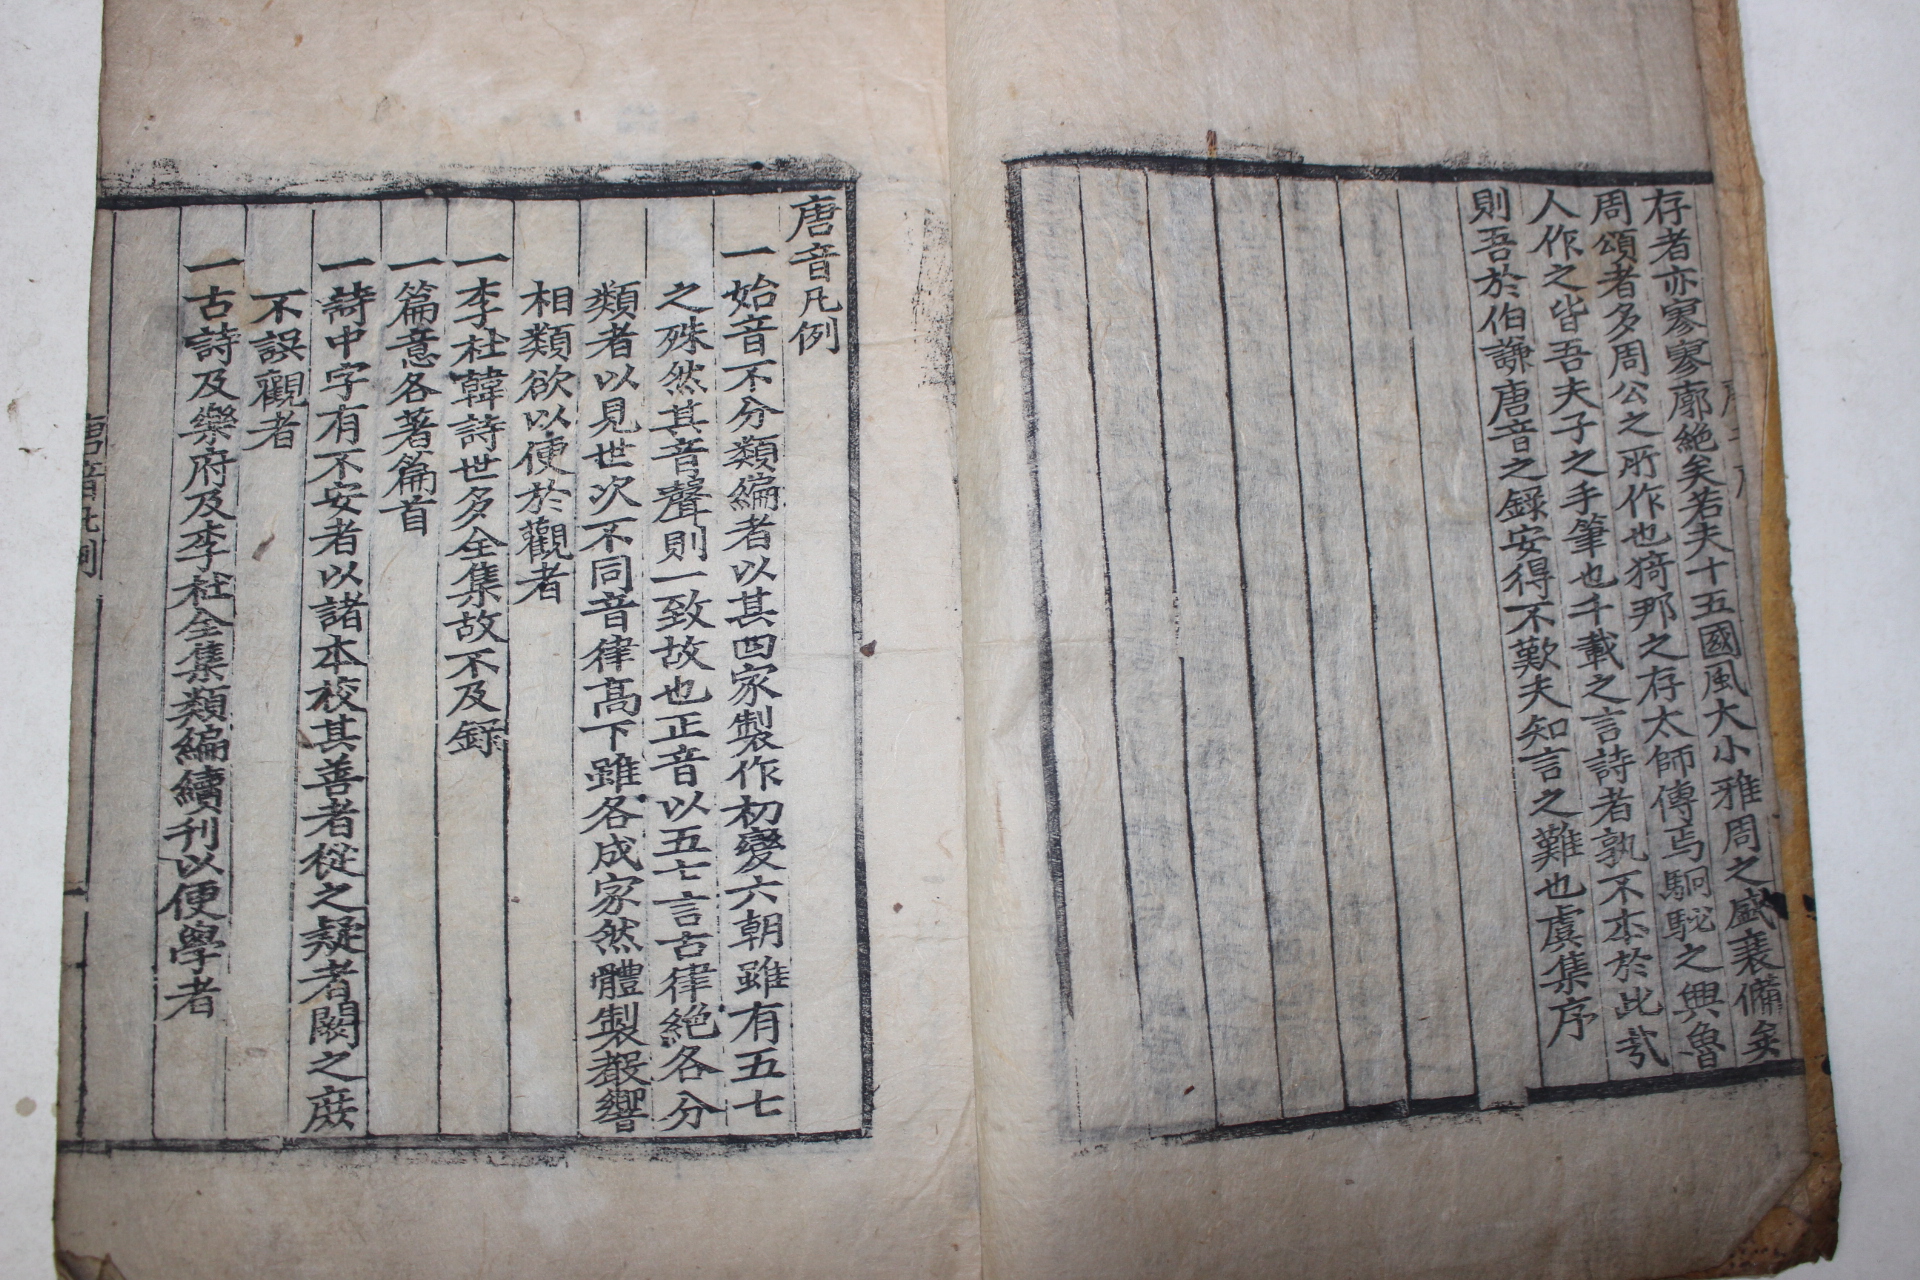 存者亦寥寥廓絶矣若夫十五國風大小雅周之盛衰備矣
周頌者多周公之所作也猗那之存太師傳焉駉駜之興魯
人作之皆吾夫子之手筆也千載之言詩者孰不本於此哉
則吾於伯謙唐音之録安得不歎夫知言之難也虞集序
唐音凡例
一始音不分類編者以其四家製作初變六朝雖有五七
之殊然其音聲則一致故也正音以五七言古律絶各分
類者以見世次不同音律高下雖各成家然體製聲響
相類欲以便於觀者
一李杜韓詩世多全集故不及録
一篇意各著篇首
一詩中字有不安者以諸本校其善者從之疑者闕之庶
不誤觀者
一古詩及樂府及李杜全集類編續刊以便學者
唐音凡例